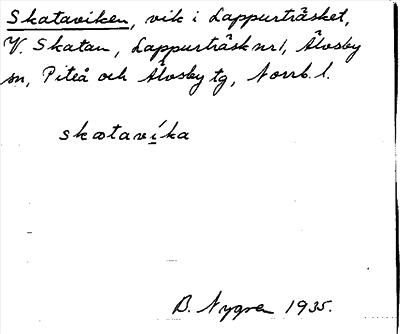 Skataviken, vik i Lappurträsket,
V. Skatan, Lappurträsk nr 1, Älvsby
sn, Piteå och Älvsby tg, Norrb. l.
skatavíka
B. Nygren 1935.